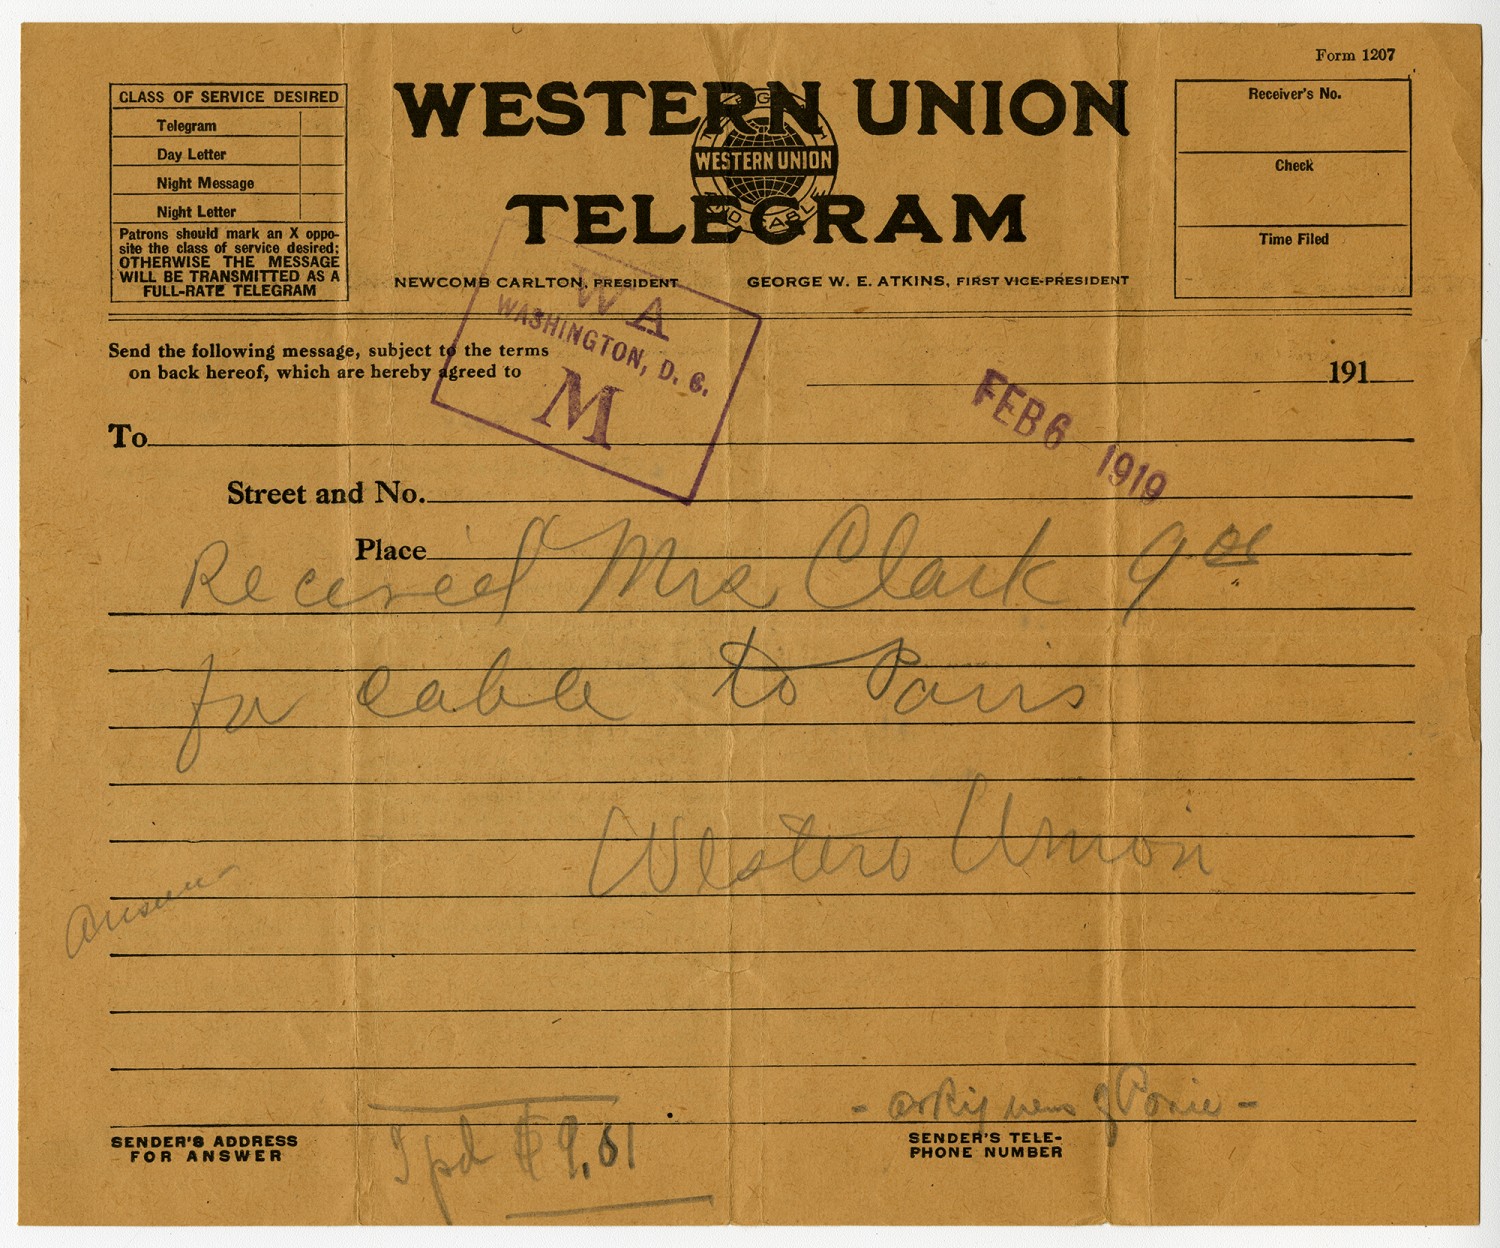 Form 1207
CLASS OF SERVICE DESIRED
Telegram
Day Letter
Night Message
Night Letter
Patrons should mark an X oppo-
site the class of service desired:
OTHERWISE THE MESSAGE
WILL BE TRANSMITTED AS A
FULL-RATE TELEGRAM
WESTERN UNION
WESTERN UNION
TELEGRAM
NEWCOMB CARLTON, PRESIDENT
GEORGE W. E. ATKINS, FIRST VICE-PRESIDENT
Receiver's No.
Check
Time Filed
Send the following message, subject to the terms
on back hereof, which are hereby agreed to
W A
WASHINGTON, D. C.
M
191
FEB 6 1919
To
Street and No.
Place
Received Mrs Clark 9
for cable to Paris
Western Union
Answer
- asking news of Porie -
I pd $9.61
SENDER'S ADDRESS
FOR ANSWER
SENDER'S TELE-
PHONE NUMBER